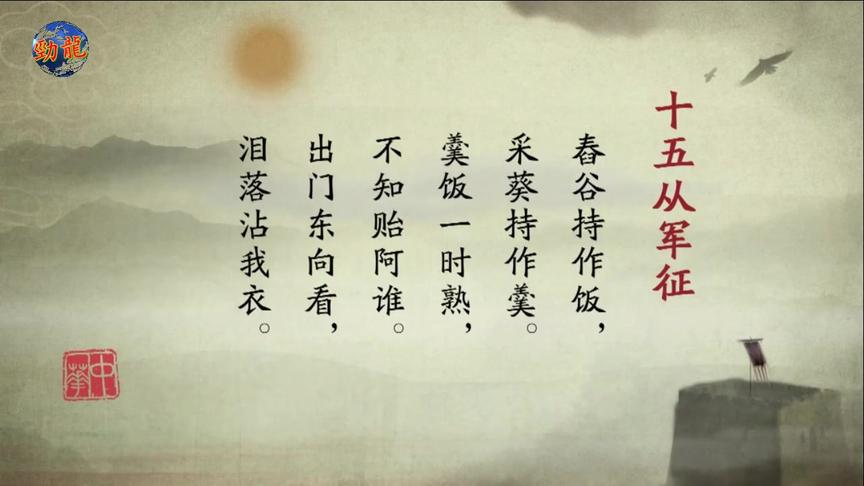 勁龍
十五从军征
舂谷持作饭，
采葵持作羹。
羹饭一时熟，
不知贻阿谁。
出门东向看，
泪落沾我衣。
中華